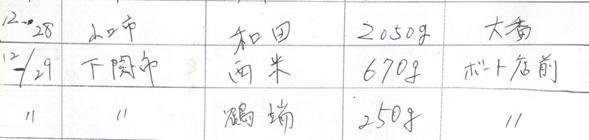 12.28 山口市 和田 2050g 大番
12/29 下関市 西米 670g ボート店前
〃 〃 鶴端 250g 〃